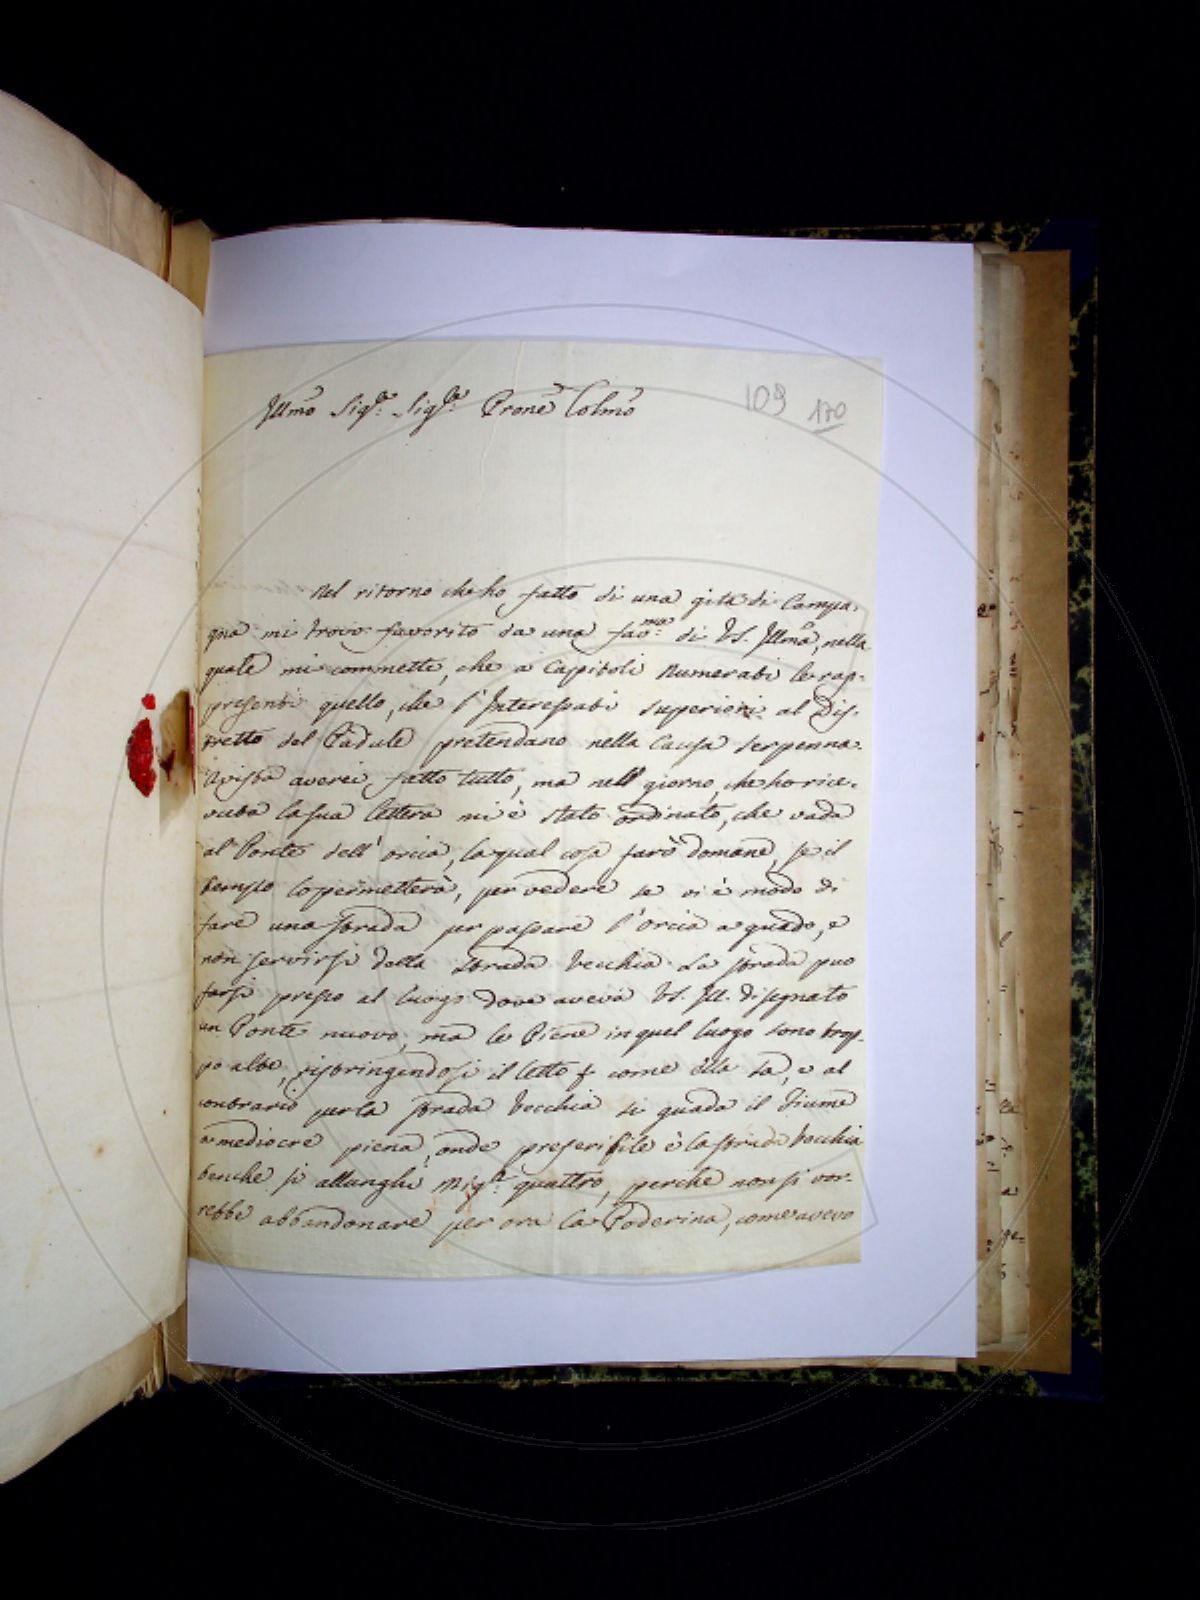 Illmo Sigre. Sigre. Prone Colmo
109 170
Nel ritorno che ho fatto di una gita di Campa-
gna mi trovo favorito da una di VS. Illma, nella
quale mi commette, che a Capitoli numerati le rap-
presenti quello, che l'Interessati superiori al Dis-
tretto del Padule pretendano nella Causa Serpenna.
averei fatto tutto, ma nell giorno, che ho rice-
vuta la sua lettera mi è stato ordinato, che vada
al Ponte dell'orcia, la qual cosa farò domane, se il
tempo lo permetterà, per vedere se vi è modo di
fare una strada per passare l'orcia a guado, e
non servirsi della strada Vecchia. La strada può
farsi presso al luogo dove aveva VS. Ill. disegnato
un Ponte nuovo, ma le Piene in quel luogo sono trop-
po alte, ristringendosi il letto come ella sa, e al
contrario per la strada Vecchia si guada il Fiume
a mediocre piena, onde preferibile è la strada Vecchia
benche si allunghi quattro, perche non si vor-
rebbe abbandonare per ora la Poderina, come avevo